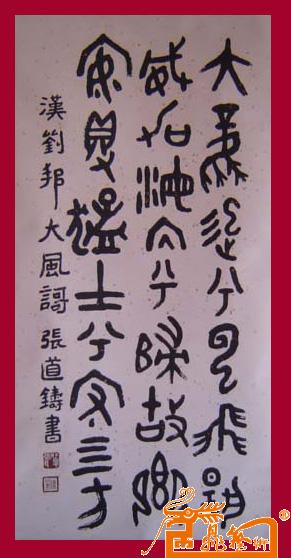 大風起兮雲飛揚
威加海內兮歸故鄉
安得猛士兮守四方
漢劉邦大風謌張道鑄書